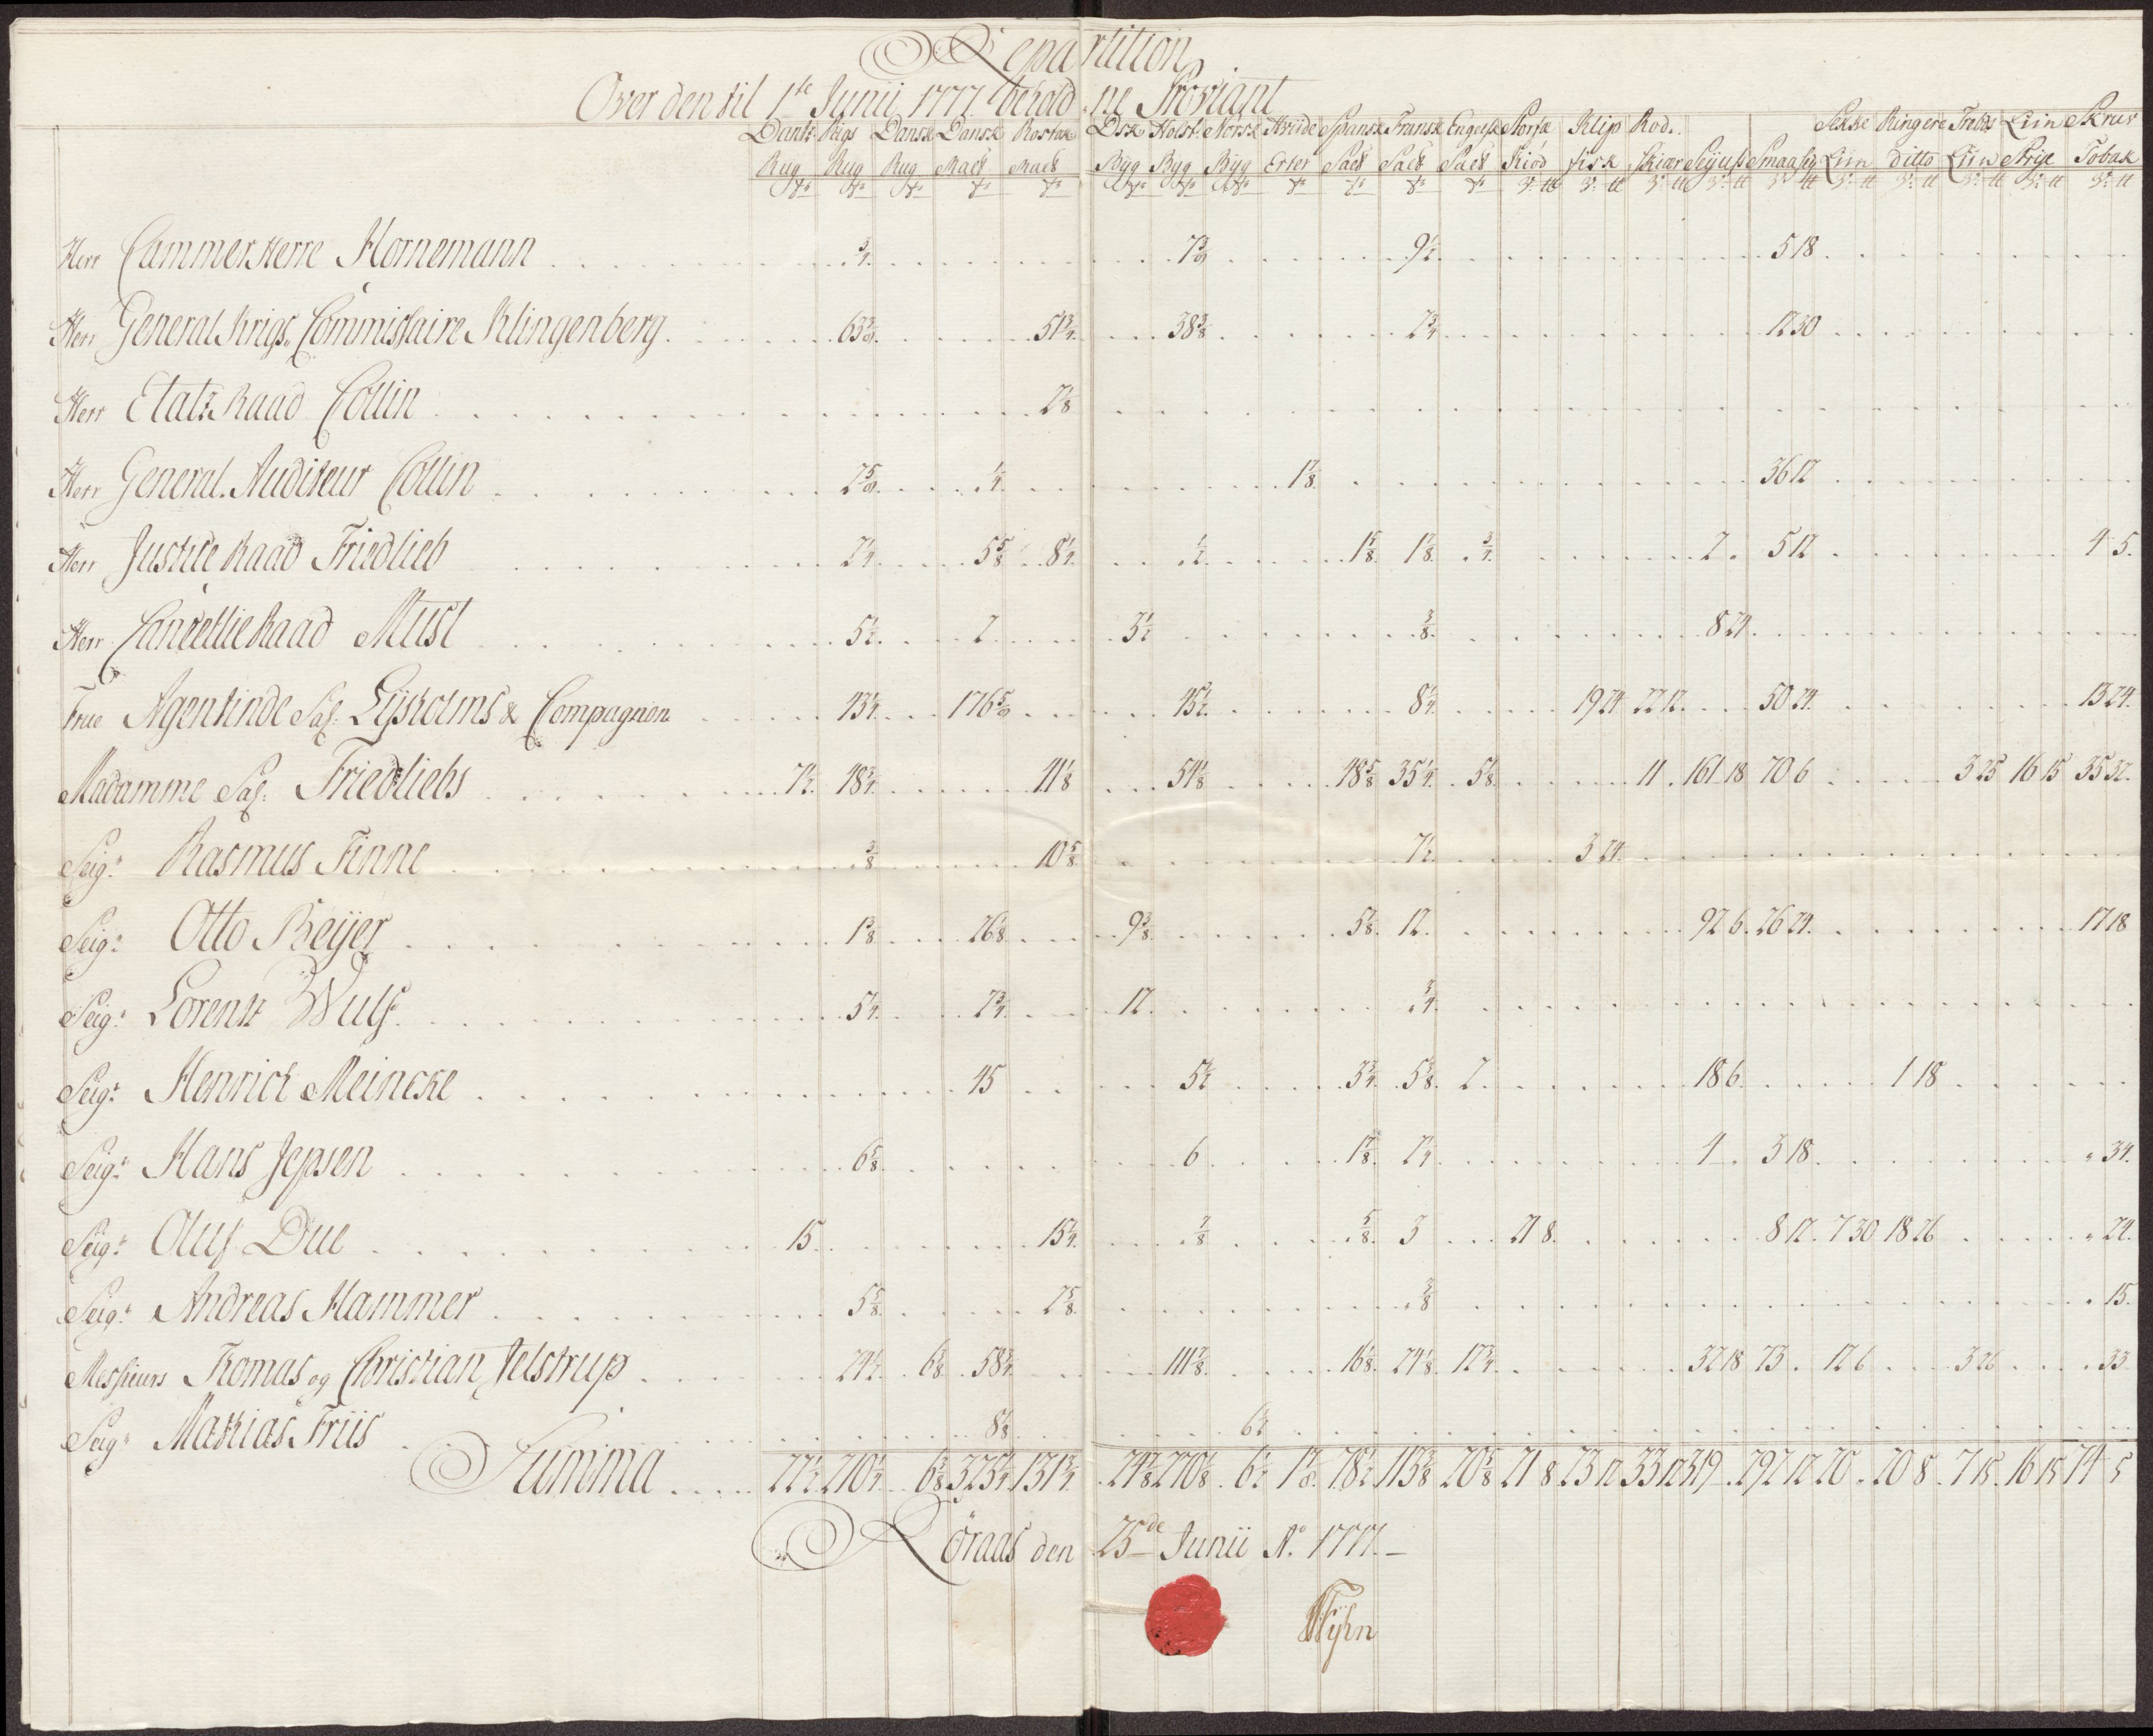 Repartition
Over den til 1te Junii 1777 behold.ne Proviant
Dantz. Rigs Dansk Dansk Rostok Dsk Holst. Norsk Hviide Spansk Fransk Engelsk Storsk Klip Rod. Ringere Liin Skruv
Rug Rug Rug Malt Malt Byg Byg Byg Erter Salt Salt Salt Kiød fisk Skiær Liin ditto Liin Tobak
Herr CammerHerre Hornemann 3/4 9 1/2 5 18
Herr General Krigs Commissaire Klingenberg 51 3/4 38 3/8 2 3/4 12 30
Herr Etatz Raad Collin 2 1/8
Herr General Auditeur Collin 1/4 1 1/8 36 12
Herr Justice Raad Friedlieb 2 1/4 5 5/8 8 1/4 1/2 1 5/8 1 1/8 3/4 2 5 12 4 5
Herr Cancellie Raad Must 5 1/2 2 3 1/2 3/8 8 24
Frue Agentinde Sal. Lysholms & Compagnon 43 1/4 45 1/2 8 1/4 19 24 22 12 50 24 13 24
Madamme Sal. Friedliebs 7 1/2 48 3/4 41 1/8 54 1/8 48 5/8 35 1/4 5 1/8 11 161 18 70 6 3 25 16 15 35 32
Seigr Rasmus Finne 3/8 10 5/8 7 1/2 3 24
Seigr Otto Beyer 1 3/8 26 1/8 9 3/8 5 1/8 12 92 6 26 24 17 18
Seigr Lorentz Wulf 5 1/4 2 3/4 12 3/4
Seigr Henrich Meincke 45 5 1/2 3 3/4 5 3/8 2 18 6 1 18
Seigr Hans Jepsen 6 5/8 6 1 7/8 2 1/4 4 3 18 34
Seigr Oluf Due 15 15 1/4 7/8 5/8 3 21 8 8 12 7 30 18 26 24
Seigr Andreas Hammer 5 5/8 2 5/8 3/8 15
Messieurs Thomas og Christian Jelstrup 24 1/2 6 3/8 58 3/4 111 3/8 16 1/8 24 1/8 12 3/4 32 18 73 12 6 3 26 33
Seigr Mathias Friis 8 1/8 6 1/2
Summa 22 1/2 210 1/4 6 3/8 325 1/4 131 3/4 24 7/8 270 1/8 6 1/2 1 1/8 78 1/2 113 3/8 20 5/8 21 8 23 12 33 12 319 292 12 20 20 8 7 15 16 15 74 5
Röraas den 25de Junii Ao 1777